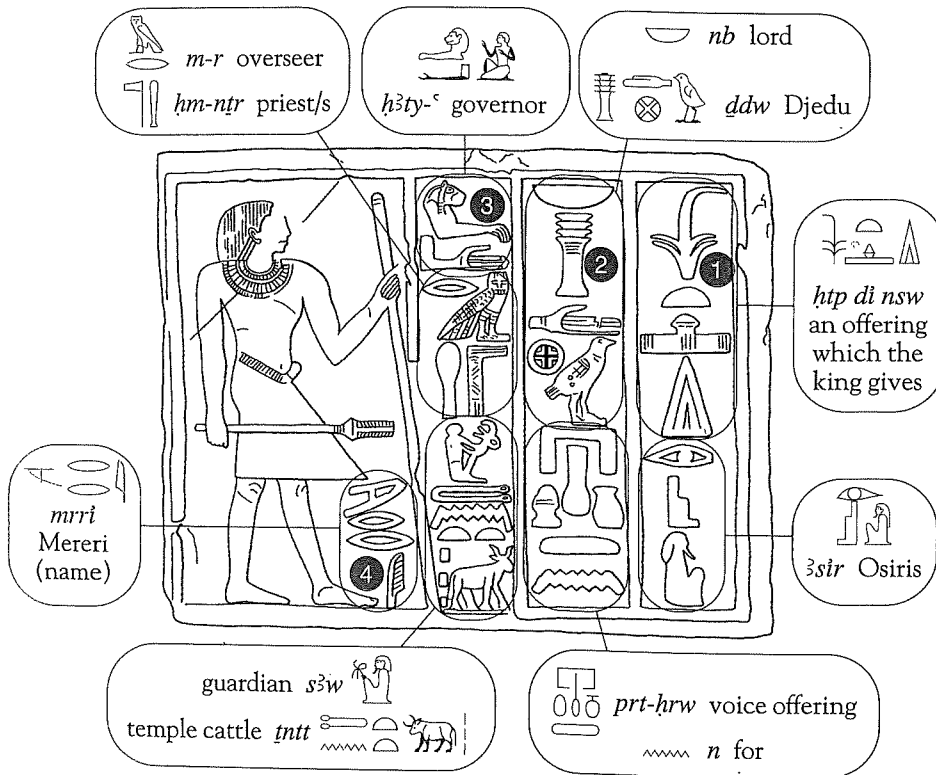 m-r overseer
ḥm-nṯr priest/s
ḥꜣty-ꜥ governor
nb lord
ḏdw Djedu
3
2
1
ḥtp dỉ nsw
an offering
which the
king gives
mrrỉ
Mereri
(name)
4
ꜣsỉr Osiris
guardian sꜣw
temple cattle ṯntt
prt-ḫrw voice offering
n for